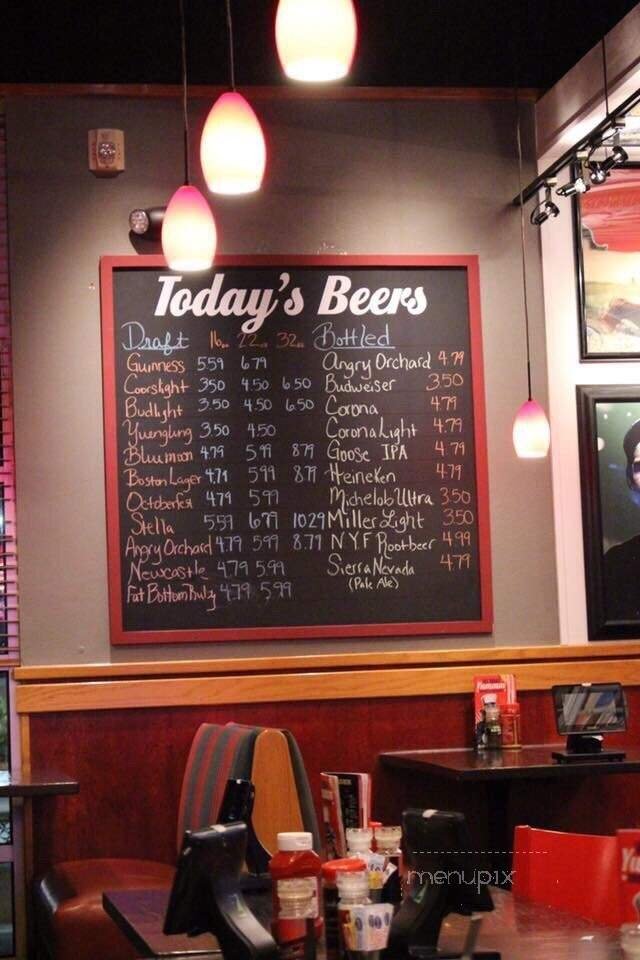 Today's Beers
Draft 16oz 22oz 32oz
Guinness 5.59 6.79
Coorslight 3.50 4.50 6.50
Budlight 3.50 4.50 6.50
Yuengling 3.50 4.50
Bluemoon 4.79 5.99 8.79
Boston Lager 4.79 5.99 8.79
Octoberfest 4.79 5.99
Stella 5.59 6.79 10.29
Angry Orchard 4.79 5.99 8.79
Newcastle 4.79 5.99
Fat Bottom Rubz 4.79 5.99
Bottled
Angry Orchard 4.79
Budweiser 3.50
Corona 4.79
Corona Light 4.79
Goose IPA 4.79
Heineken 4.79
Michelob Ultra 3.50
Miller Light 3.50
N.Y.F Rootbeer 4.99
Sierra Nevada 4.79
(Pale Ale)
menupix